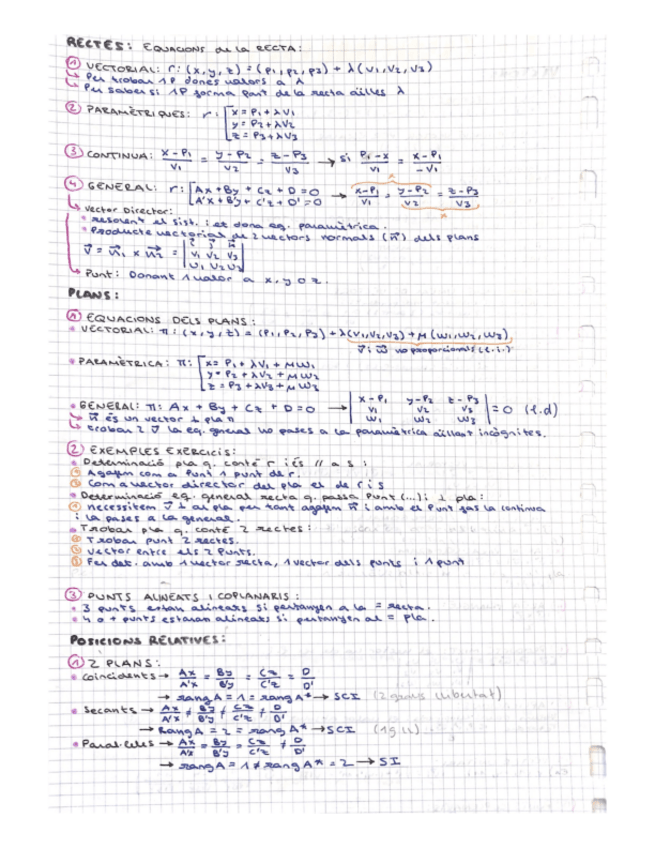 RECTES: EQUACIONS de la RECTA:
① VECTORIAL: r: (x, y, z) = (P1, P2, P3) + λ (V1, V2, V3)
↳ Per trobar 1P dones valors a λ
↳ Per saber si 1P forma part de la recta aïlles λ
② PARAMÈTRIQUES: r: [x = P1 + λV1
y = P2 + λV2
z = P3 + λV3
③ CONTINUA: x-P1/V1 = y-P2/V2 = z-P3/V3 → si P1-x/V1 = x-P1/-V1
④ GENERAL: r: [Ax + By + Cz + D = 0 → x-P1/V1 = y-P2/V2 = z-P3/V3
A'x + B'y + C'z + D' = 0
↳ Vector Director:
• resolent el sist. i et dona eq. paramètrica.
• Producte vectorial de 2 vectors normals (n) dels plans
v = n1 x n2 = | i j k |
| V1 V2 V3 |
| W1 W2 W3 |
↳ Punt: Donant 1 valor a x, y o z.
PLANS:
① EQUACIONS DELS PLANS:
• VECTORIAL: π: (x, y, z) = (P1, P2, P3) + λ(V1, V2, V3) + μ (W1, W2, W3)
v i w no proporcionals (l.i.)
• PARAMÈTRICA: π: [x = P1 + λV1 + μW1
y = P2 + λV2 + μW2
z = P3 + λV3 + μW3
• GENERAL: π: Ax + By + Cz + D = 0 → | x-P1 y-P2 z-P3 |
| V1 V2 V3 | = 0 (l.d)
| W1 W2 W3 |
↳ n és un vector ⊥ pla π
↳ trobar 2 v la eq. general no pases a la paramètrica aïllant incògnites.
② EXEMPLES EXERCICIS:
• Determinació pla q. conté r i és // a s:
① Agafem com a Punt 1 punt de r.
② Com a vector director del pla el de r i s
• Determinació eq. general recta q. passa Punt (...) i ⊥ pla:
① necessitem v ⊥ al pla per tant agafem n i amb el Punt fas la continua
i la pases a la general.
• Trobar pla q. conté 2 rectes:
① Trobar punt 2 rectes.
② Vector entre els 2 Punts.
③ Fer det. amb 1 vector recta, 1 vector dels punts i 1 punt
③ PUNTS ALINEATS I COPLANARIS:
• 3 punts estan alineats si pertanyen a la = recta.
• 4 o + punts estaran alineats si pertanyen al = pla.
POSICIONS RELATIVES:
① 2 PLANS:
• Coincidents → Ax/A'x = By/B'y = Cz/C'z = D/D'
→ rang A = 1 = rang A* → SCI (2 graus llibertat)
• Secants → Ax/A'x ≠ By/B'y ≠ Cz/C'z ≠ D/D'
→ Rang A = 2 = rang A* → SCI (1 g ll)
• Paral·leles → Ax/A'x = By/B'y = Cz/C'z ≠ D/D'
→ rang A = 1 ≠ rang A* = 2 → SI